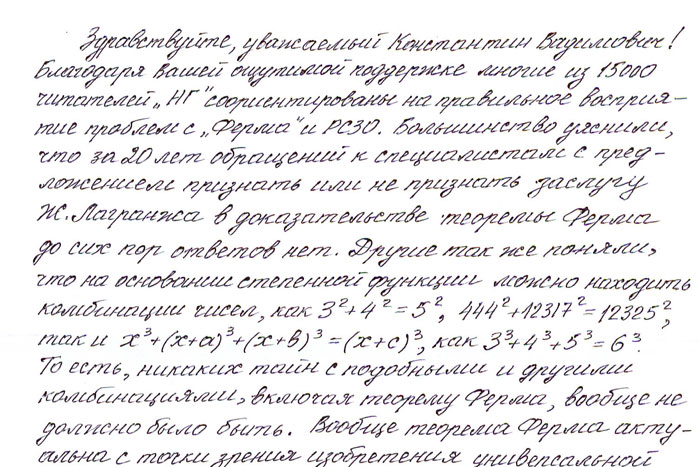 Здравствуйте, уважаемый Константин Вадимович!
Благодаря Вашей ощутимой поддержке многие из 15000
читателей „НГ" сориентированы на правильное восприя-
тие проблем с „Ферма" и РСЗО. Большинство уяснили,
что за 20 лет обращений к специалистам с пред-
ложением признать или не признать заслугу
Ж. Лагранжа в доказательстве теоремы Ферма
до сих пор ответов нет. Другие так же поняли,
что на основании степенной функции можно находить
комбинации чисел, как 3²+4²=5², 444²+12317²=12325²,
так и x³+(x+a)³+(x+b)³=(x+c)³, как 3³+4³+5³=6³.
То есть, никаких тайн с подобными и другими
комбинациями, включая теорему Ферма, вообще не
должно было быть. Вообще теорема Ферма акту-
альна с точки зрения изобретения универсальной